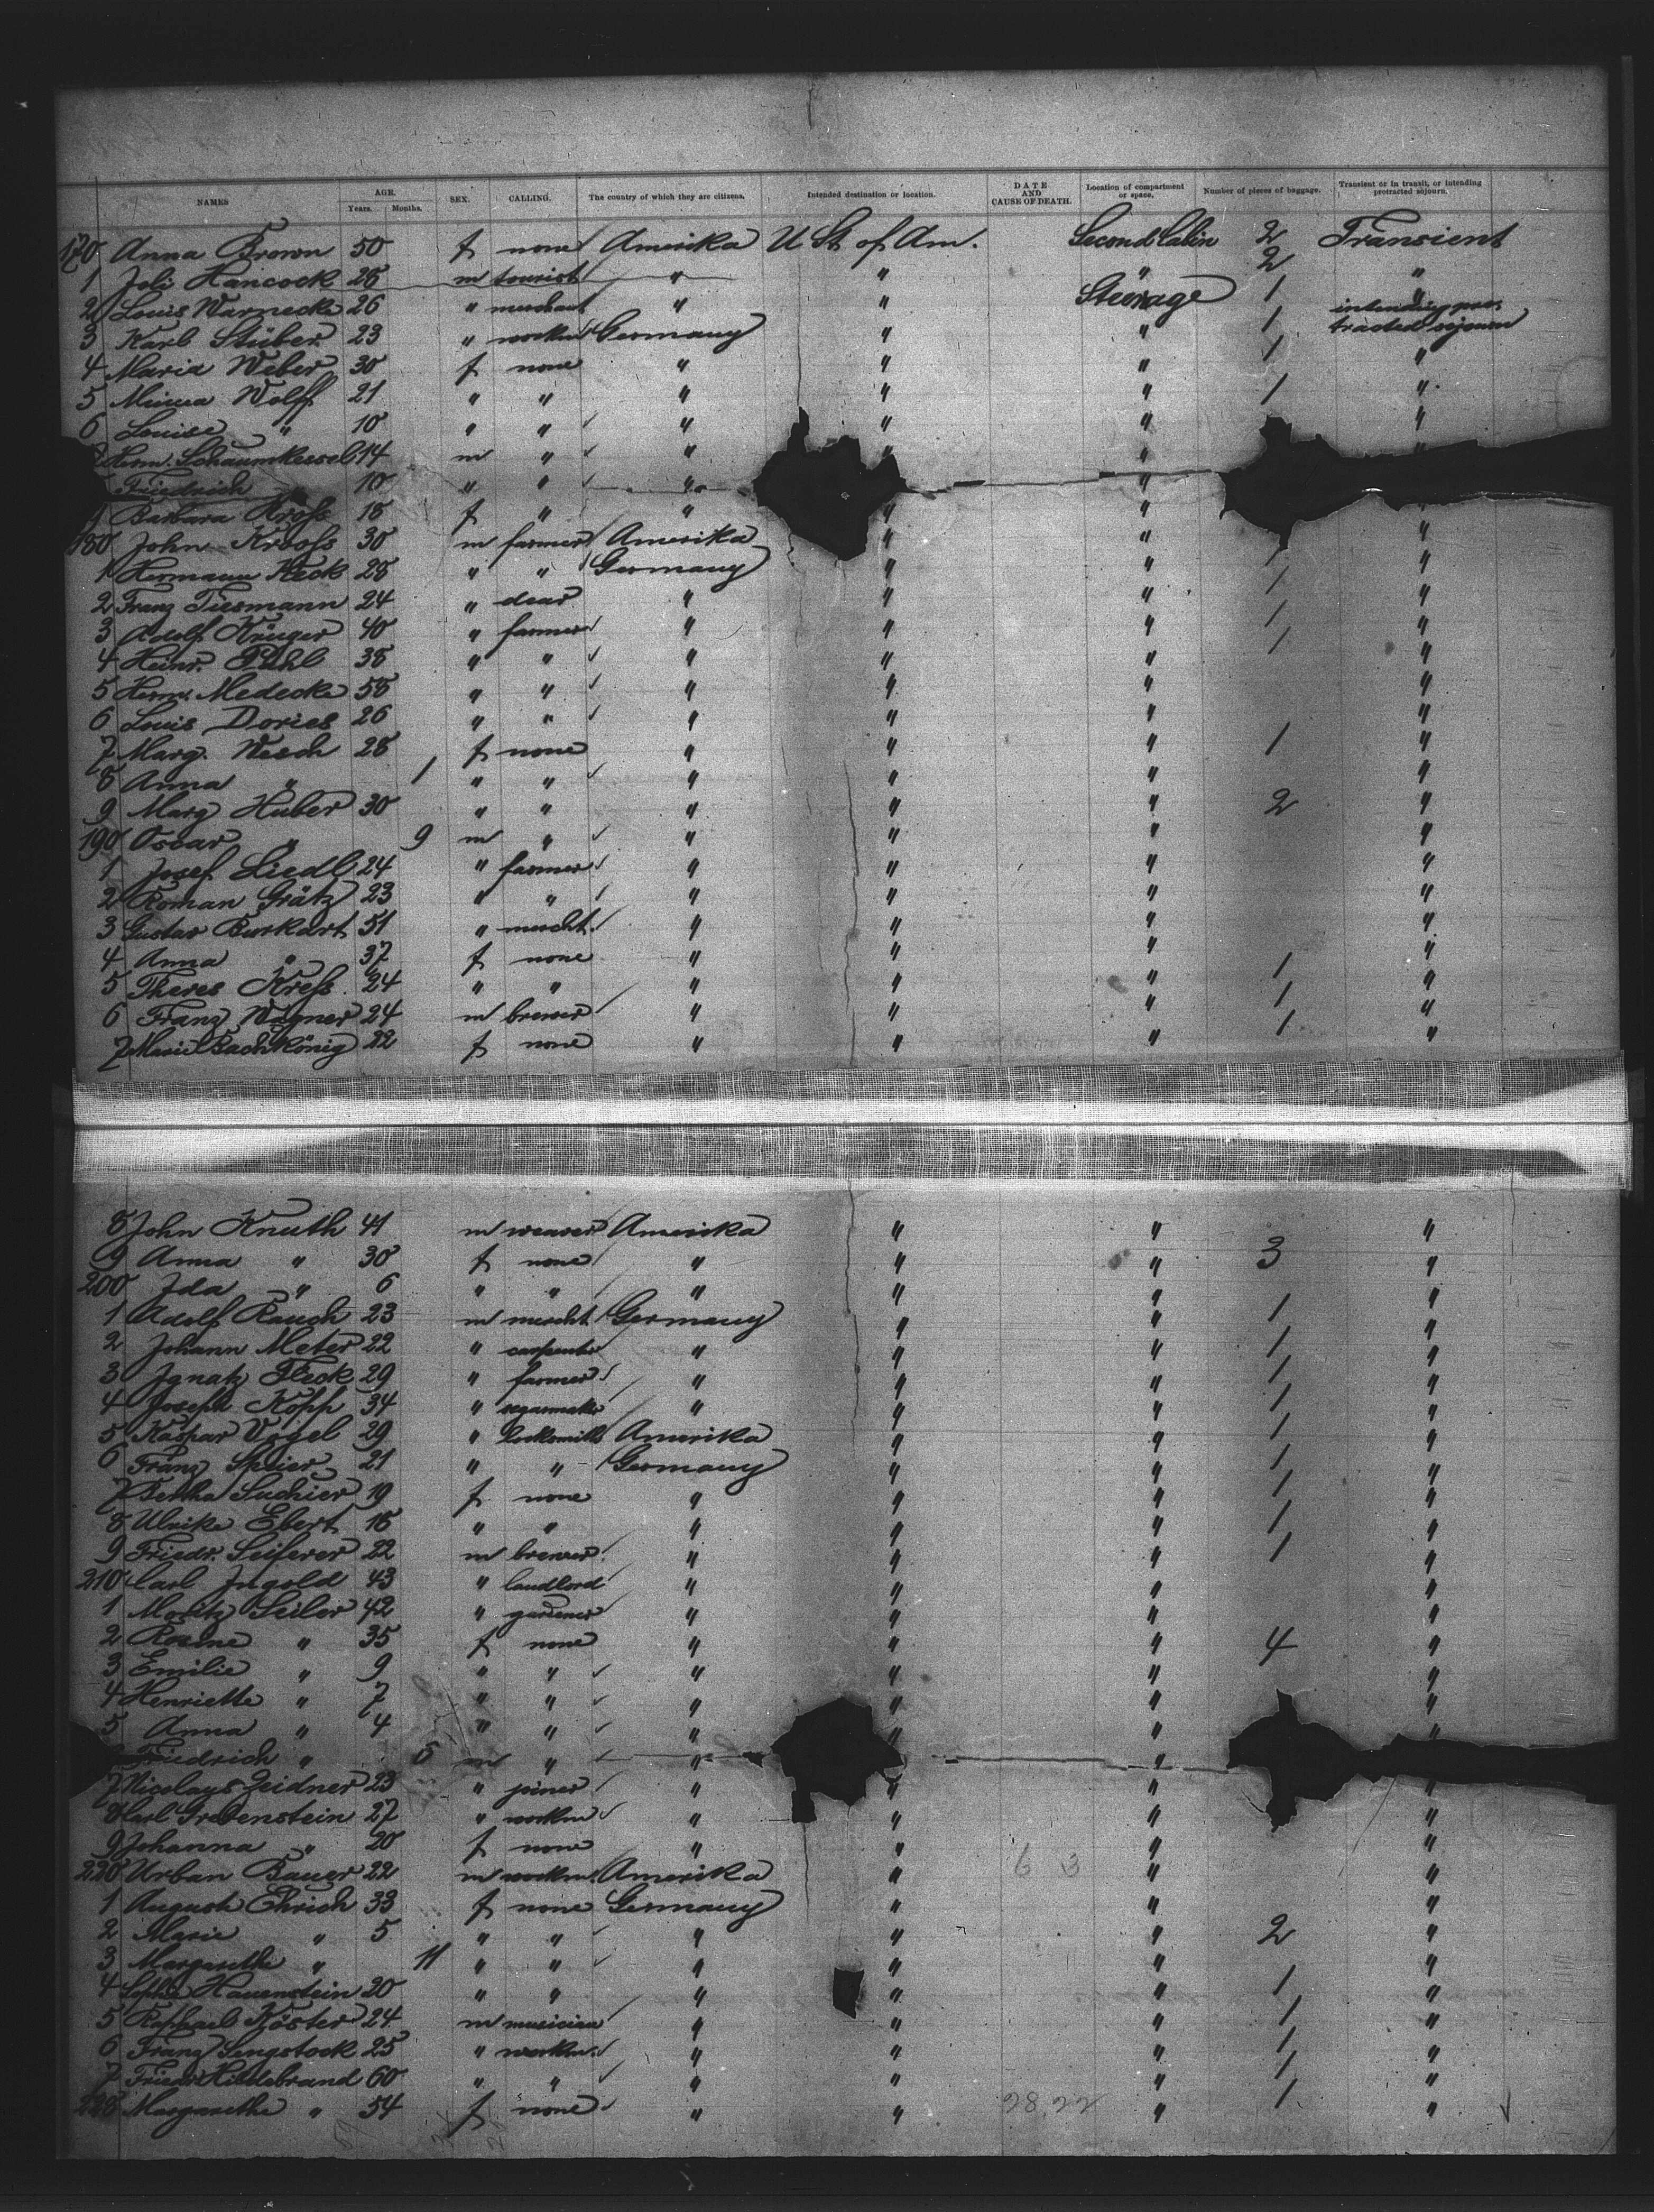 NAMES AGE. Years. Months. SEX. CALLING. The country of which they are citizens. Intended destination or location. DATE AND CAUSE OF DEATH. Location of compartment or space. Number of pieces of baggage. Transient or in transit, or intending protracted sojourn.
170 Anna Brown 50 f none Amerika U St of Am. Second Cabin 2 Transient
1 Hancock 28 m tourist " " " 2 "
2 Louis Warnecke 26 " merchant " " Steerage 1 intending pro-
3 Karl Stüber 23 " workm Germany " " 1 tracted sojourn
4 Maria Weber 30 f none " " " 1 "
5 Minna Wolff 21 " " " " " 1 "
6 Louise " 10 " " " " " "
Herm. Schaumkessel 14 m " " " "
Friedrich 10 " " " "
9 Barbara 18 f " " " " "
180 John Krooss 30 m farmer Amerika " " 1 "
1 Hermann Keck 28 " " Germany " " 1 "
2 Franz Tiesmann 24 " " " " 1 "
3 Adolf Krüger 40 " farmer " " " 1 "
4 Heinr. 38 " " " " " "
5 Herm. Medecke 58 " " " " " "
6 Louis Dories 26 " " " " " "
7 Marg. Wesch 28 f none " " " 1 "
8 Anna " 1 " " " " " "
9 Marg Huber 30 " " " " " 2 "
190 Oscar " 9 m " " " " "
1 Josef Liedl 24 " farmer " " " "
2 Roman Grätz 23 " " " " " "
3 Gustav Burkart 51 " mercht. " " " "
4 Anna " 37 f none " " " 1 "
5 Theres Kress 24 " " " " " 1 "
6 Franz Wagner 24 m brewer " " " 1 "
7 Marie Bachkönig 22 f none " " " "
8 John Knuth 41 m weaver Amerika " " "
9 Anna " 30 f none " " " 3 "
200 Ida " 6 " " " " " "
1 Adolf Rauch 23 m mercht Germany " " 1 "
2 Johann Meter 22 " carpenter " " " 1 "
3 Ignatz Fleck 29 " farmer " " " 1 "
4 Joseph Kopp 34 " segarmaker " " " 1 "
5 Kaspar Vogel 29 " locksmith Amerika " " 1 "
6 Franz Speier 21 " " Germany " " 1 "
7 Bertha Suchier 19 f none " " " 1 "
8 Ulrike Ebert 18 " " " " " 1 "
9 Friedr. Seiferer 22 m brewer " " " 1 "
210 Carl Ingold 43 " landlord " " " "
1 Moritz Seiler 42 " gardener " " " "
2 Rosine " 35 f none " " " 4 "
3 Emilie " 9 " " " " " "
4 Henriette " 7 " " " " " "
5 Anna " 4 " " " " " "
Friedrich " m " " "
7 Nicolaus Zeidner 23 " joiner " " " "
8 Karl Grebenstein 27 " workm " " " "
9 Johanna " 20 f none " " " "
220 Urban Bauer 22 m workm. Amerika " 6 3 " "
1 August Ehrich 33 f none Germany " " "
2 Marie " 5 " " " " " 2 "
3 Margarethe " 11 " " " " " "
4 Sophie Hauenstein 20 " " " " " 1 "
5 Raphael Köster 24 m musician " " " 1 "
6 Franz Sengstock 25 " workm. " " " 1 "
7 Friedr Hildebrand 60 " " " " " 1 "
228 Margarethe " 54 f none " " 28,22 " 1 "